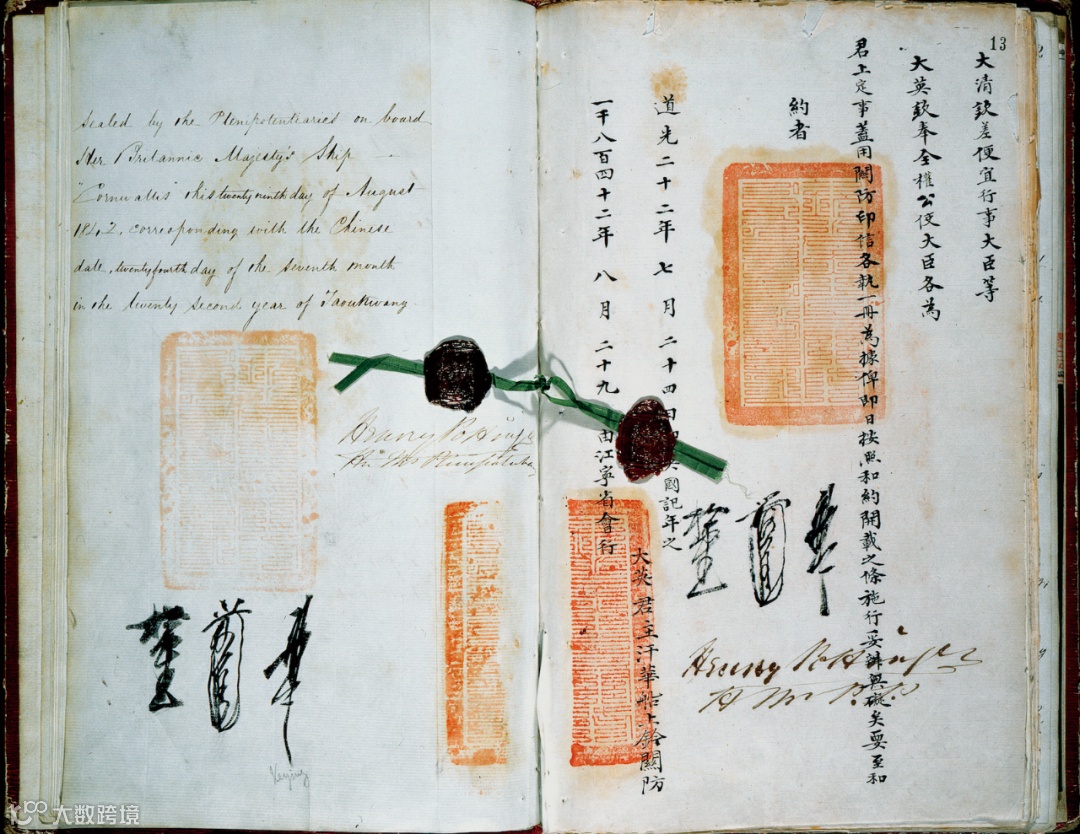 Sealed by the Plenipotentiaries on board
Her Britannic Majesty's Ship
"Cornwallis" this twenty ninth day of August
1842, corresponding with the Chinese
date, twenty fourth day of the seventh month
in the twenty second year of Taoukwang
Henry Pottinger
Keying
13
大清欽差便宜行事大臣等
大英欽奉全權公使大臣各為
君上定事蓋用關防印信各執一冊為據俾即日按照和約開載之條施行妥辦無礙矣要至和
約者
道光二十二年七月二十四日即英國記年之
一千八百四十二年八月二十九由江寧省會行
大英君主汗華船上鈐關防
Henry Pottinger
大数跨境